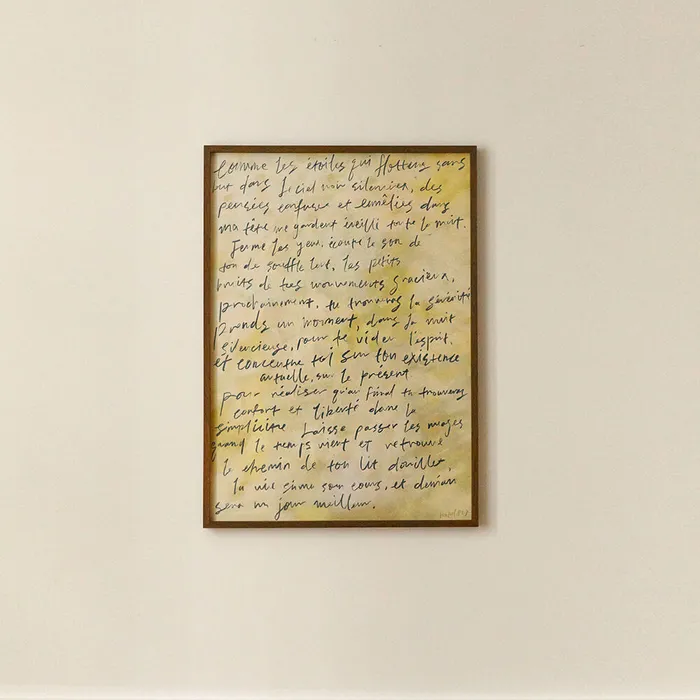 comme les étoiles qui flottent sans
but dans le ciel noir silencieux, des
pensées confuses et emêlées dans
ma tête me gardent éveillé toute la nuit.
Ferme les yeux, écoute le son de
ton de souffle lent, les petits
bruits de tes mouvements gracieux,
prochainement, tu trouveras la sérénité
Prends un moment, dans la nuit
silencieuse, pour te vider l'esprit.
et concentre toi sur ton existence
actuelle, sur le présent
pour réaliser qu'au final tu trouveras
confort et liberté dans la
simplicité Laisse passer les nuages
quand le temps vient et retrouve
le chemin de ton lit douillet,
la vie suit son cours, et demain
sera un jour meilleur.